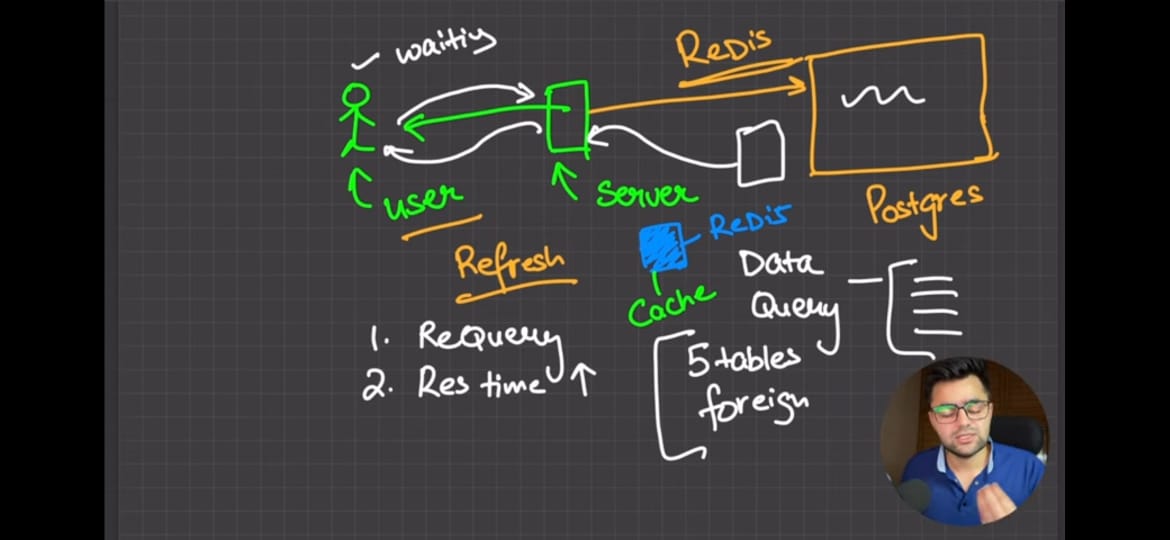 waiting
Redis
user
Server
Postgres
Refresh
Redis
Cache
Data
Query
1. Requery
2. Res time ↑
5 tables
foreign